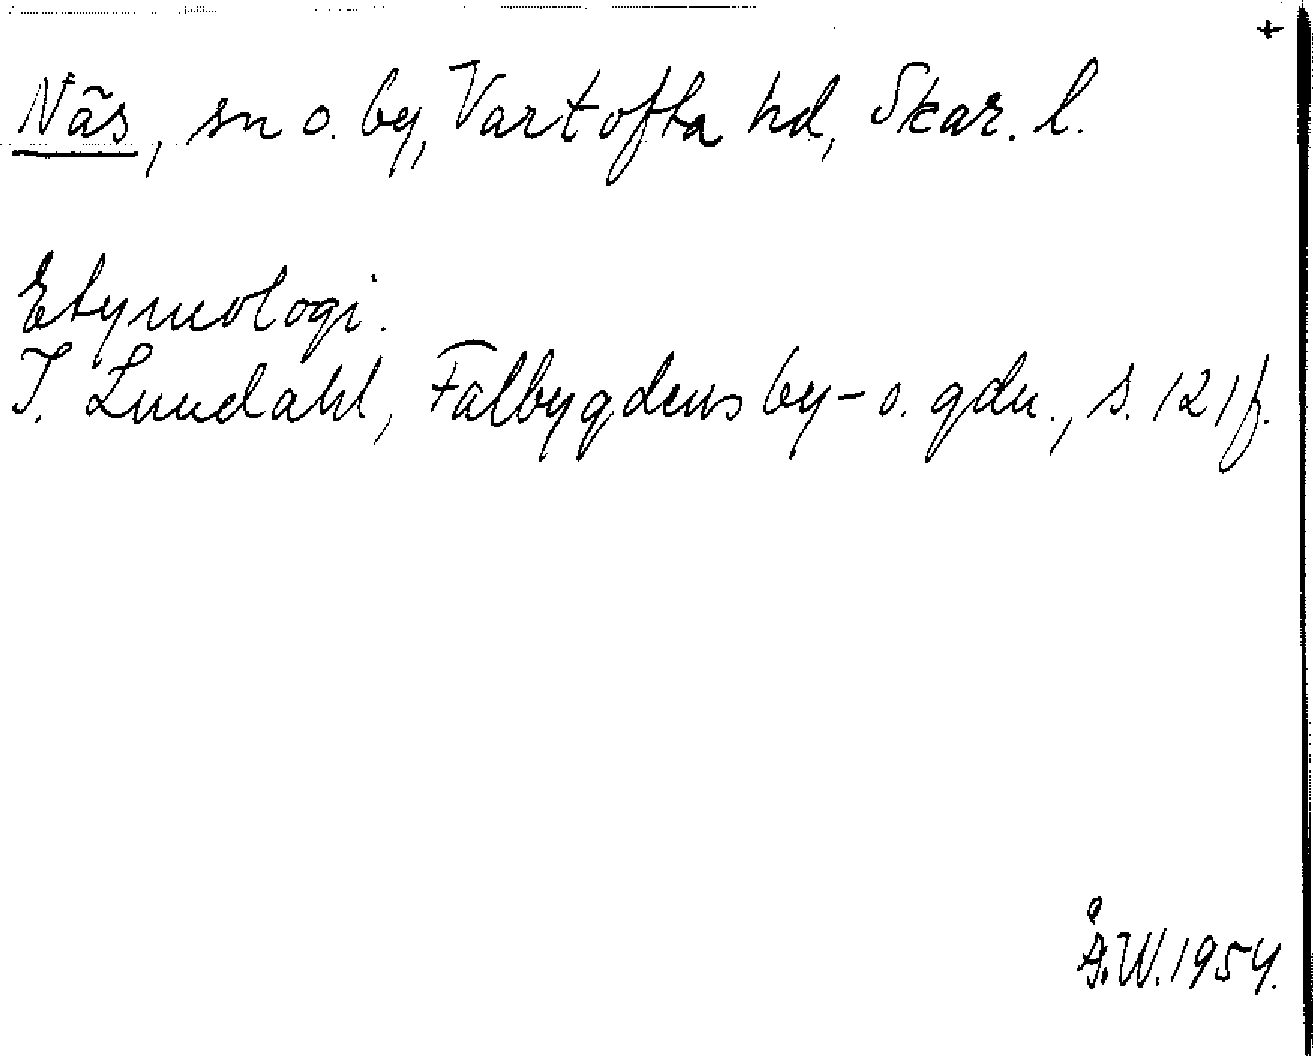 +
Näs, sn o. by, Vartofta hd, Skar. l.
Etymologi.
I. Lundahl, Falbygdens by- o. gdn., s. 121f.
Å.W.1954.